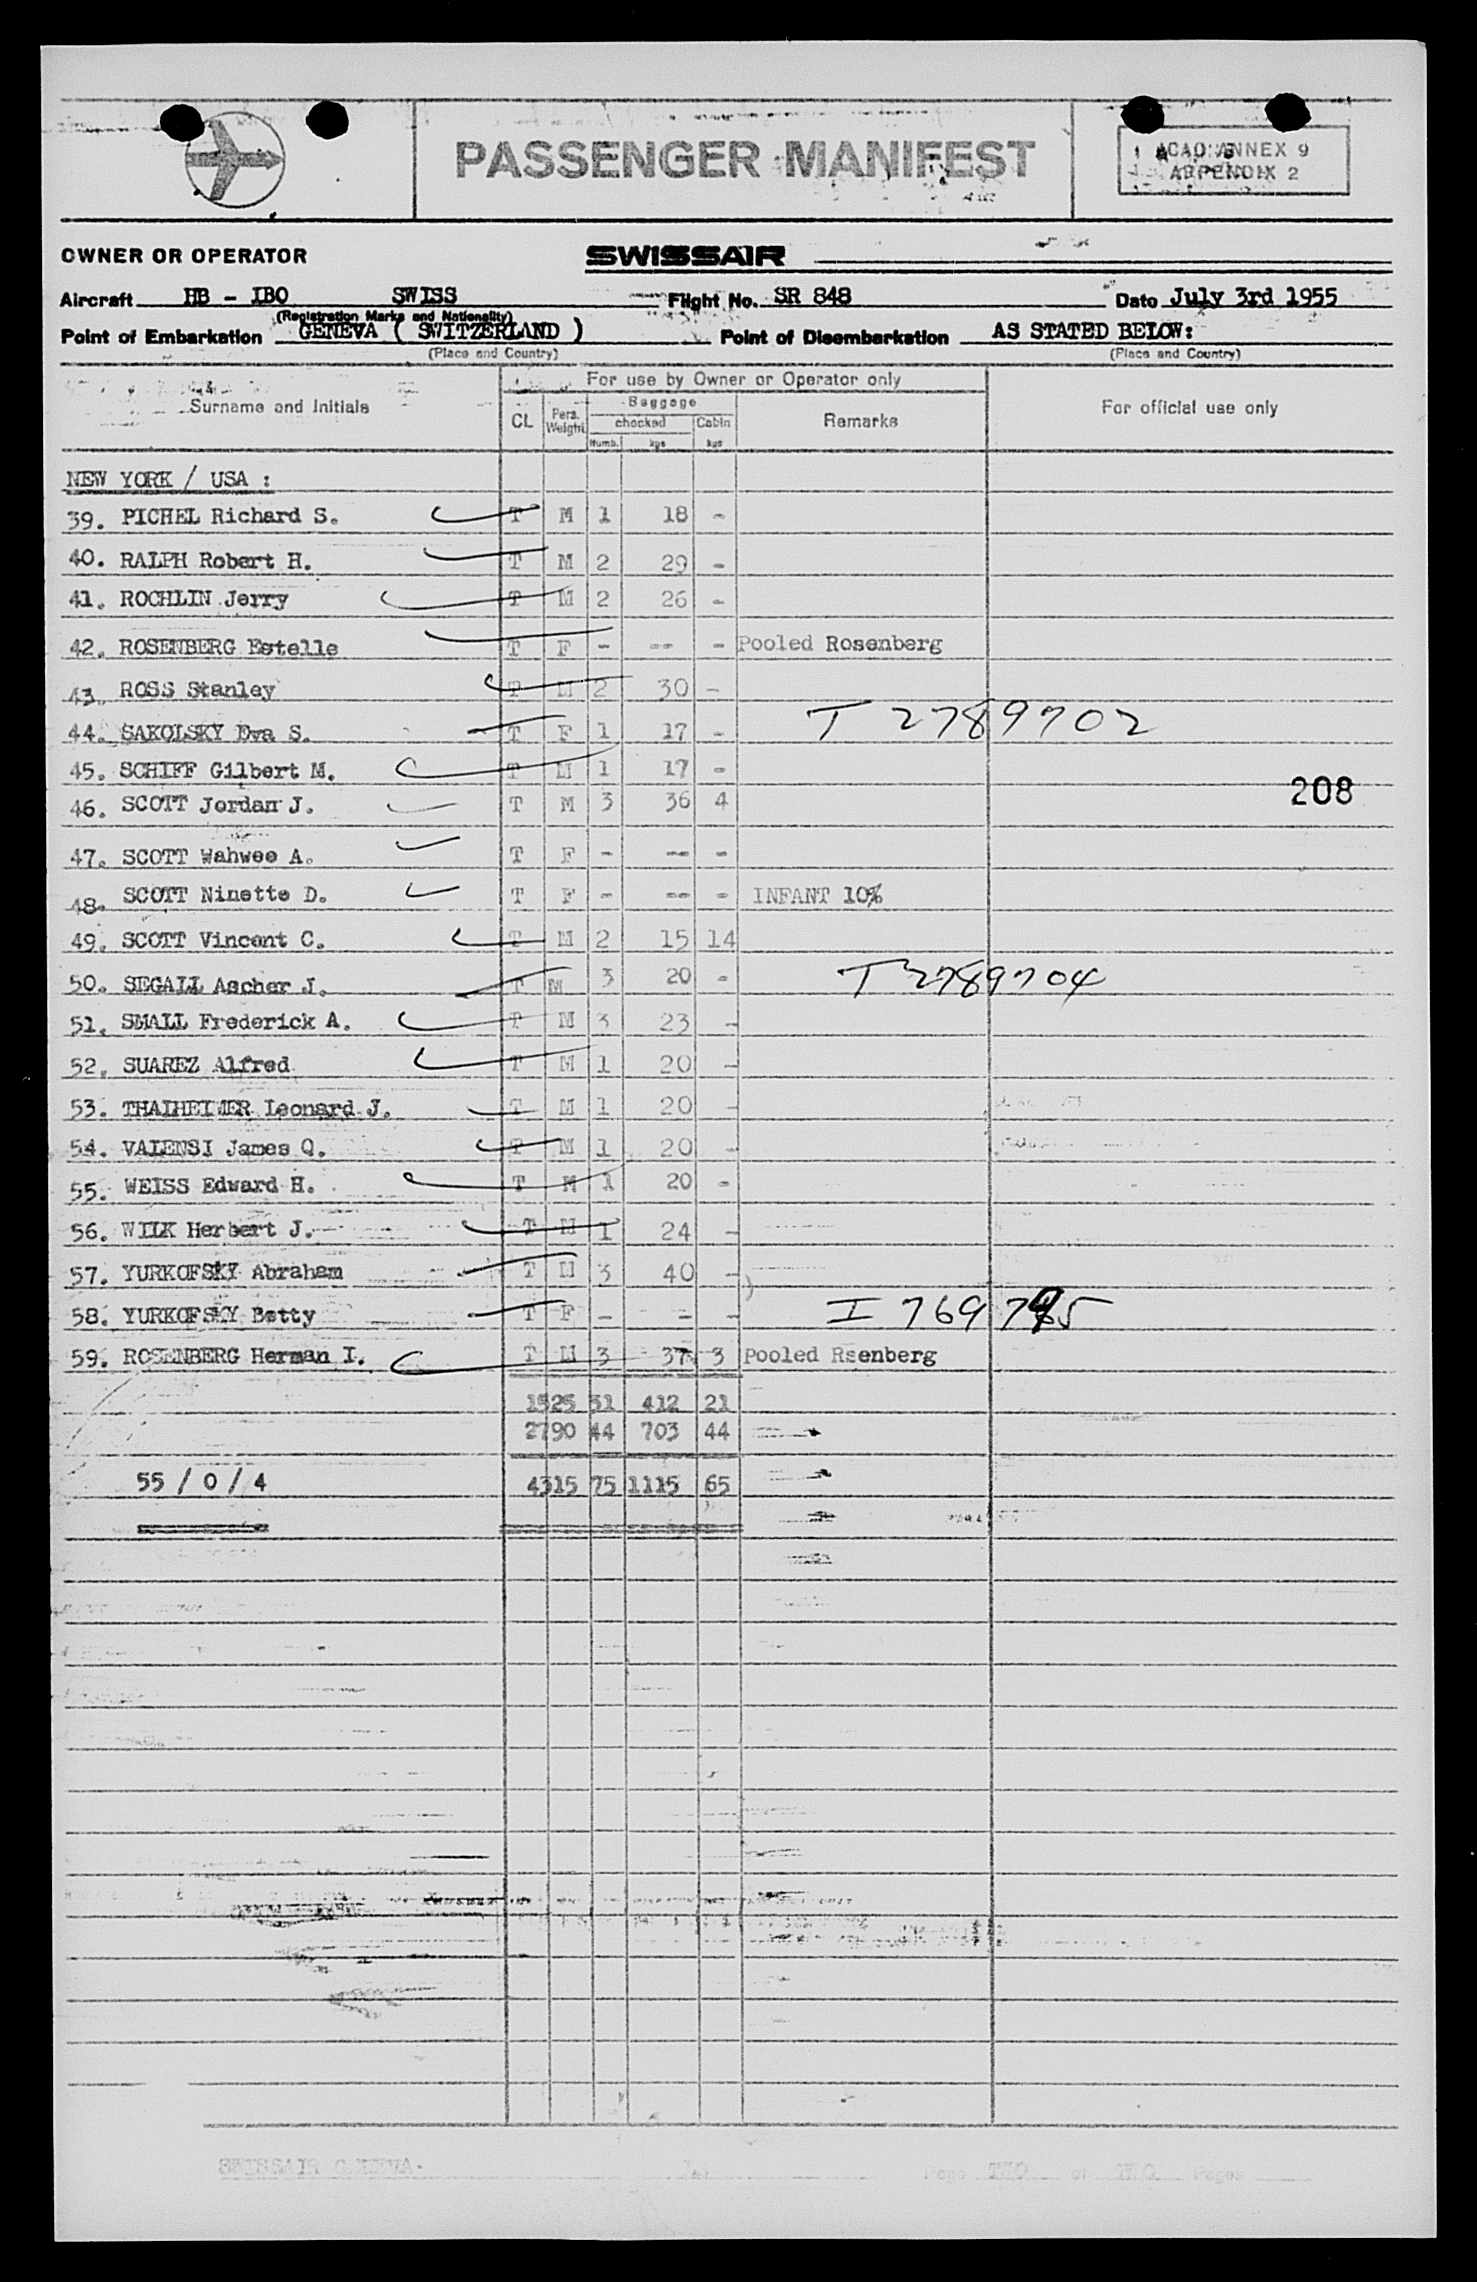 PASSENGER MANIFEST
ICAO ANNEX 9
APPENDIX 2
OWNER OR OPERATOR SWISSAIR
Aircraft HB - IBO SWISS Flight No. SR 848 Date July 3rd 1955
(Registration Marks and Nationality)
Point of Embarkation GENEVA ( SWITZERLAND ) Point of Disembarkation AS STATED BELOW:
(Place and Country) (Place and Country)
For use by Owner or Operator only
Surname and Initials CL Pers. Weight Baggage checked Numb. kgs Cabin kgs Remarks For official use only
NEW YORK / USA :
39. PICHEL Richard S. T M 1 18 -
40. RALPH Robert H. T M 2 29 -
41. ROCHLIN Jerry T M 2 26 -
42. ROSENBERG Estelle T F - -- - Pooled Rosenberg
43. ROSS Stanley T M 2 30 -
44. SAKOLSKY Eva S. T F 1 17 - T 2789702
45. SCHIFF Gilbert M. T M 1 17 -
208
46. SCOTT Jordan J. T M 3 36 4
47. SCOTT Wahwee A. T F - -- -
48. SCOTT Ninette D. T F - -- - INFANT 10%
49. SCOTT Vincent C. T M 2 15 14
50. SEGALL Ascher J. T M 3 20 - T 2789704
51. SMALL Frederick A. T M 3 23 -
52. SUAREZ Alfred T M 1 20 -
53. THALHEIMER Leonard J. T M 1 20 -
54. VALENSI James Q. T M 1 20 -
55. WEISS Edward H. T M 1 20 -
56. WILK Herbert J. T M 1 24 -
57. YURKOFSKY Abraham T M 3 40 - )
58. YURKOFSKY Betty T F - - - I 769
59. ROSENBERG Herman I. T M 3 37 3 Pooled Rsenberg
1525 31 412 21
2790 44 703 44
55 / 0 / 4 4315 75 1115 65
SWISSAIR GENEVA. Page TWO of TWO Pages